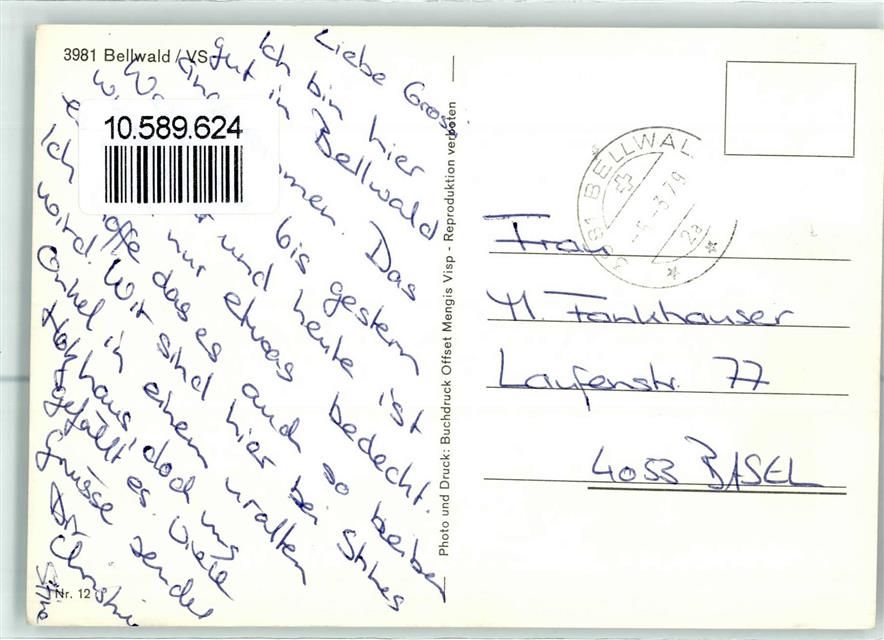 3981 Bellwald / VS
Liebe Grosi
Ich bin hier
gut in Bellwald
men. Das
bis gestern
und heute ist
nur etwas bedeckt.
Ich hoffe das es auch so bleiben
wird. Wir sind hier bei Stines
Onkel in einem uralten
Holzhaus, doch uns
gefällt es. Viele
Grüsse sendet
Dir Christine
Stine
Nr. 12
10.589.624
Photo und Druck: Buchdruck Offset Mengis Visp - Reproduktion verboten
3981 BELLWAL
-5.-3.79
2a
Frau
M. Fankhauser
Laufenstr. 77
4053 BASEL